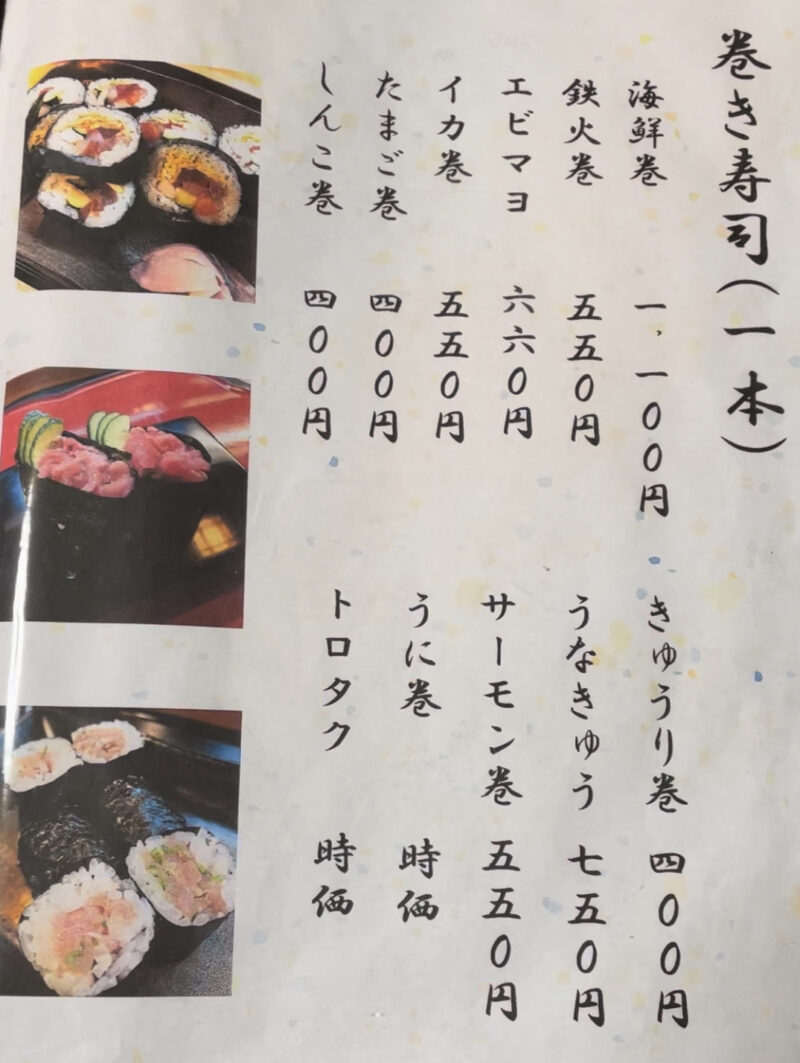 巻き寿司(一本)
海鮮巻 一、一〇〇円
鉄火巻 五五〇円
エビマヨ 六六〇円
イカ巻 五五〇円
たまご巻 四〇〇円
しんこ巻 四〇〇円
きゅうり巻 四〇〇円
うなきゅう 七五〇円
サーモン巻 五五〇円
うに巻 時価
トロタク 時価